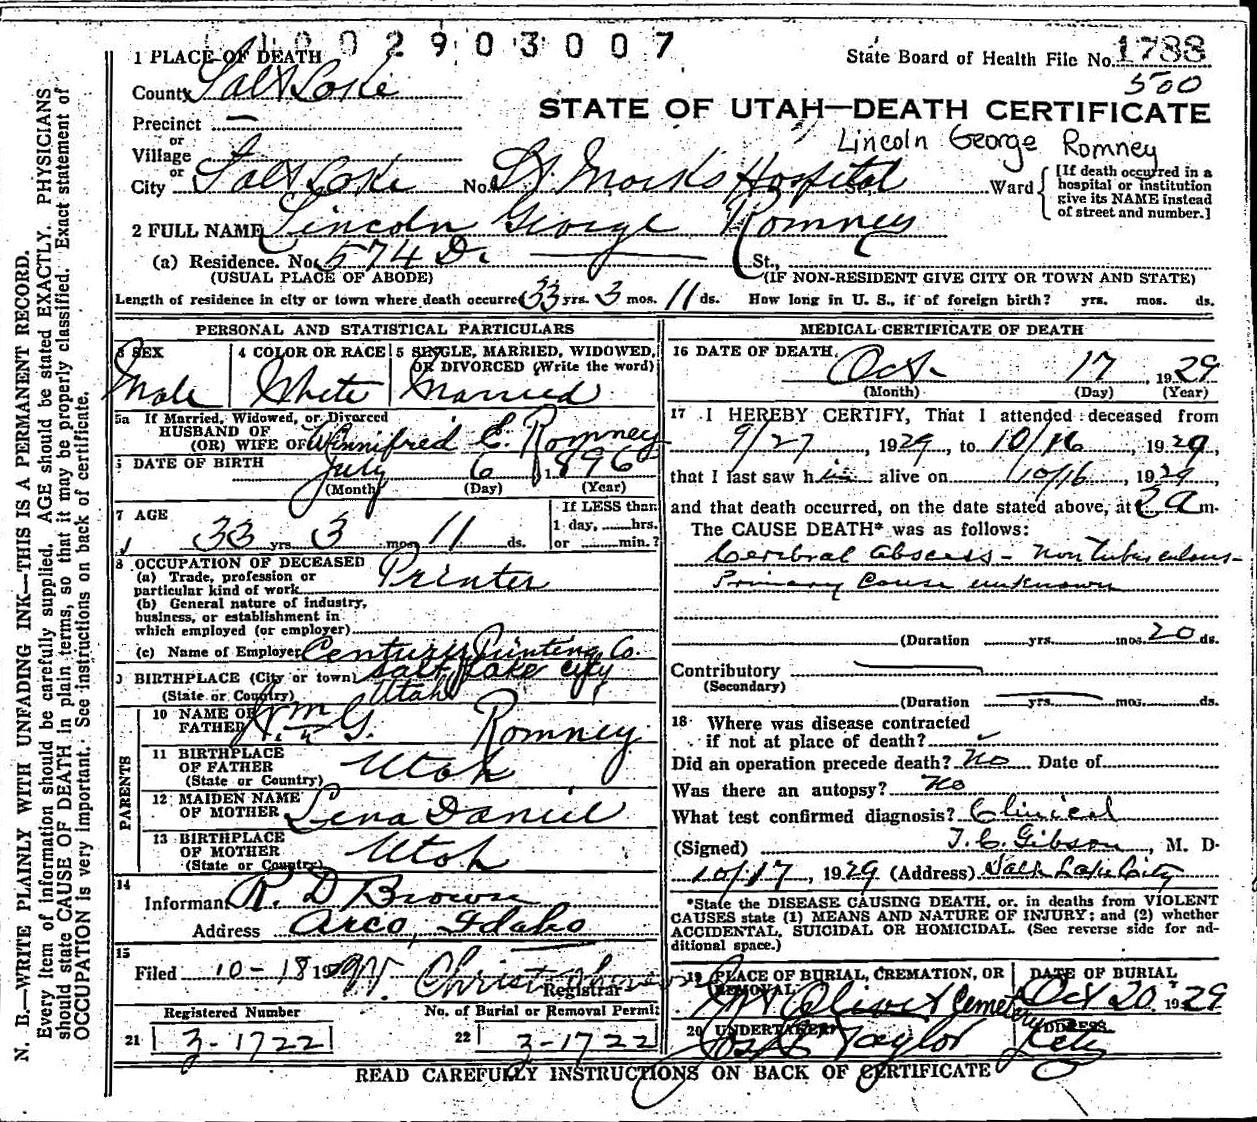 1002903007
State Board of Health File No. 1788
500
1 PLACE OF DEATH
County Salt Lake
STATE OF UTAH—DEATH CERTIFICATE
Precinct —
or
Village
or
Lincoln George Romney
City Salt Lake No. St. Marks Hospital St., Ward
[If death occurred in a hospital or institution give its NAME instead of street and number.]
2 FULL NAME Lincoln George Romney
(a) Residence. No. 574 D. St.,
(USUAL PLACE OF ABODE) (IF NON-RESIDENT GIVE CITY OR TOWN AND STATE)
Length of residence in city or town where death occurred 33 yrs. 3 mos. 11 ds. How long in U. S., if of foreign birth? yrs. mos. ds.
PERSONAL AND STATISTICAL PARTICULARS
3 SEX
Male
4 COLOR OR RACE
White
5 SINGLE, MARRIED, WIDOWED, OR DIVORCED (Write the word)
Married
5a If Married, Widowed, or Divorced
HUSBAND OF
(OR) WIFE OF Winnifred E. Romney
DATE OF BIRTH July 6 1896
(Month) (Day) (Year)
7 AGE
33 yrs. 3 mos. 11 ds.
If LESS than
1 day, hrs.
or min.?
8 OCCUPATION OF DECEASED
(a) Trade, profession or
particular kind of work Printer
(b) General nature of industry,
business, or establishment in
which employed (or employer)
(c) Name of Employer Century Printing Co.
BIRTHPLACE (City or town) Salt Lake City
(State or Country) Utah
PARENTS
10 NAME OF
FATHER Wm G. Romney
11 BIRTHPLACE
OF FATHER Utah
(State or Country)
12 MAIDEN NAME
OF MOTHER Lena Daniel
13 BIRTHPLACE
OF MOTHER Utah
(State or Country)
14
Informant R. D Brown
Address Arco, Idaho
15
Filed 10-18 1929 W. Christ
Registrar
Registered Number No. of Burial or Removal Permit
21 3-1722 22 3-1722
MEDICAL CERTIFICATE OF DEATH
16 DATE OF DEATH.
Oct. 17, 1929
(Month) (Day) (Year)
17 I HEREBY CERTIFY, That I attended deceased from
9/27, 1929, to 10/16, 1929,
that I last saw him alive on 10/16, 1929
and that death occurred, on the date stated above, at 3 a m.
The CAUSE DEATH* was as follows:
Cerebral Abscess - Non tuberculous-
Primary Cause unknown
(Duration yrs. mos. 20 ds.
Contributory
(Secondary)
(Duration yrs. mos. ds.
18 Where was disease contracted
if not at place of death?
Did an operation precede death? No Date of
Was there an autopsy? No
What test confirmed diagnosis? Clinical
(Signed) T. C. Gibson, M. D.
10/17, 1929 (Address) Salt Lake City
*State the DISEASE CAUSING DEATH, or, in deaths from VIOLENT
CAUSES state (1) MEANS AND NATURE OF INJURY; and (2) whether
ACCIDENTAL, SUICIDAL OR HOMICIDAL. (See reverse side for ad-
ditional space.)
19 PLACE OF BURIAL, CREMATION, OR REMOVAL
Mt Olivet Cemetery
DATE OF BURIAL
Oct 20, 1929
20 UNDERTAKER
Taylor
ADDRESS
City
READ CAREFULLY INSTRUCTIONS ON BACK OF CERTIFICATE
N. B.—WRITE PLAINLY WITH UNFADING INK—THIS IS A PERMANENT RECORD.
Every item of information should be carefully supplied. AGE should be stated EXACTLY. PHYSICIANS
should state CAUSE OF DEATH in plain terms, so that it may be properly classified. Exact statement of
OCCUPATION is very important. See instructions on back of certificate.